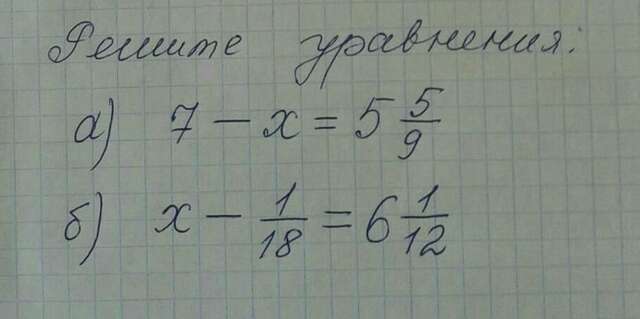 Решите уравнения:
а) 7 - x = 5 5/9
б) x - 1/18 = 6 1/12